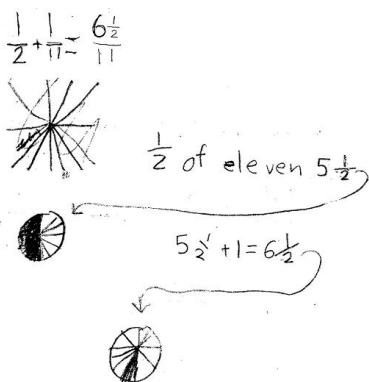 1/2 + 1/11 = 6 1/2 / 11
1/2 of eleven 5 1/2
5 1/2 + 1 = 6 1/2